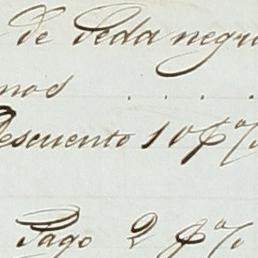 de Seda negra
mos . . . .
Descuento 10 p%
Pago 2 p%